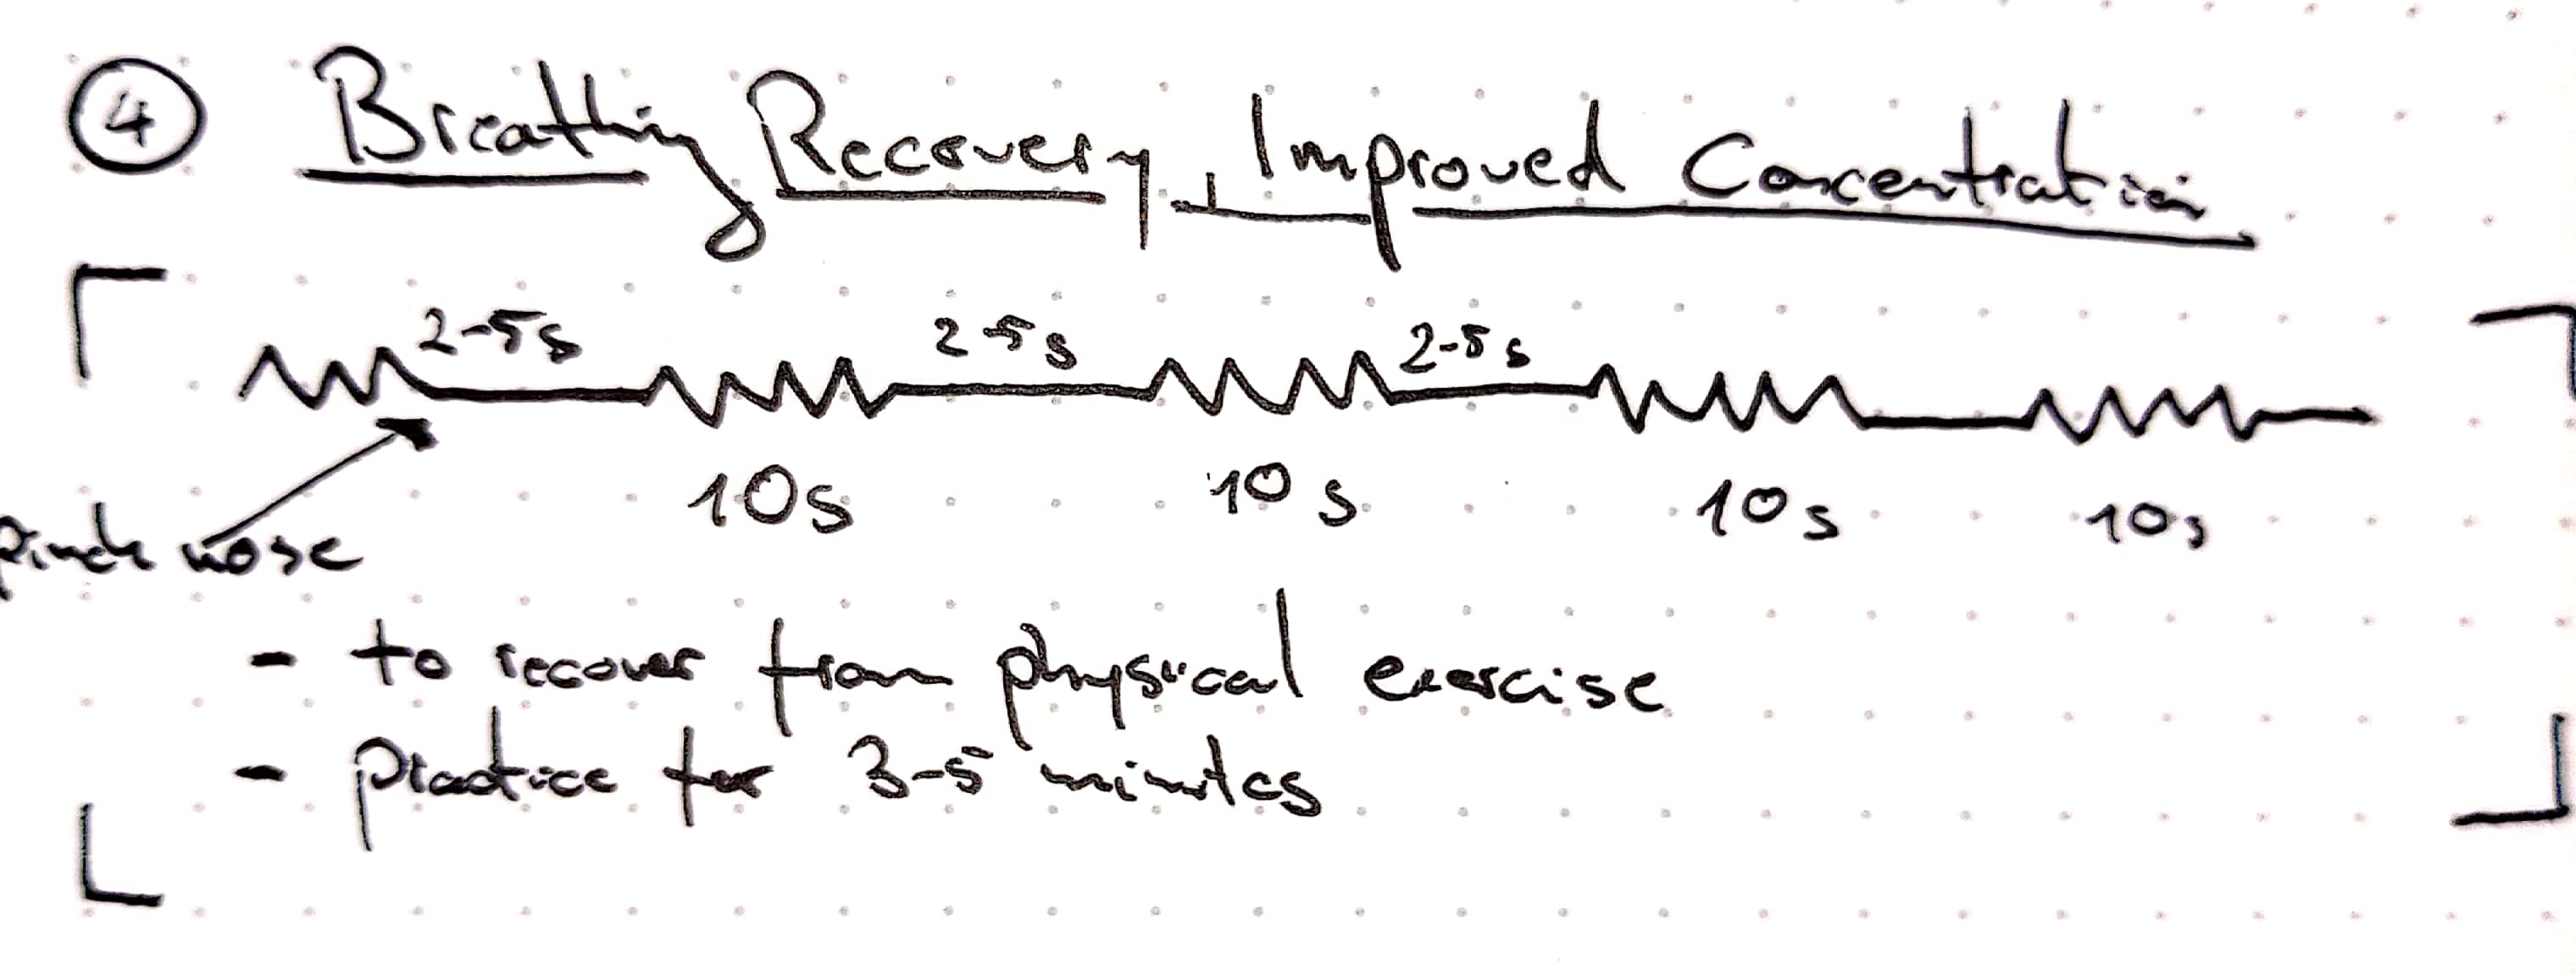 ④ Breathing Recovery, Improved Concentration
2-5s 2-5s 2-5s
10s 10s 10s 10s
pinch nose
- to recover from physical exercise
- practice for 3-5 minutes